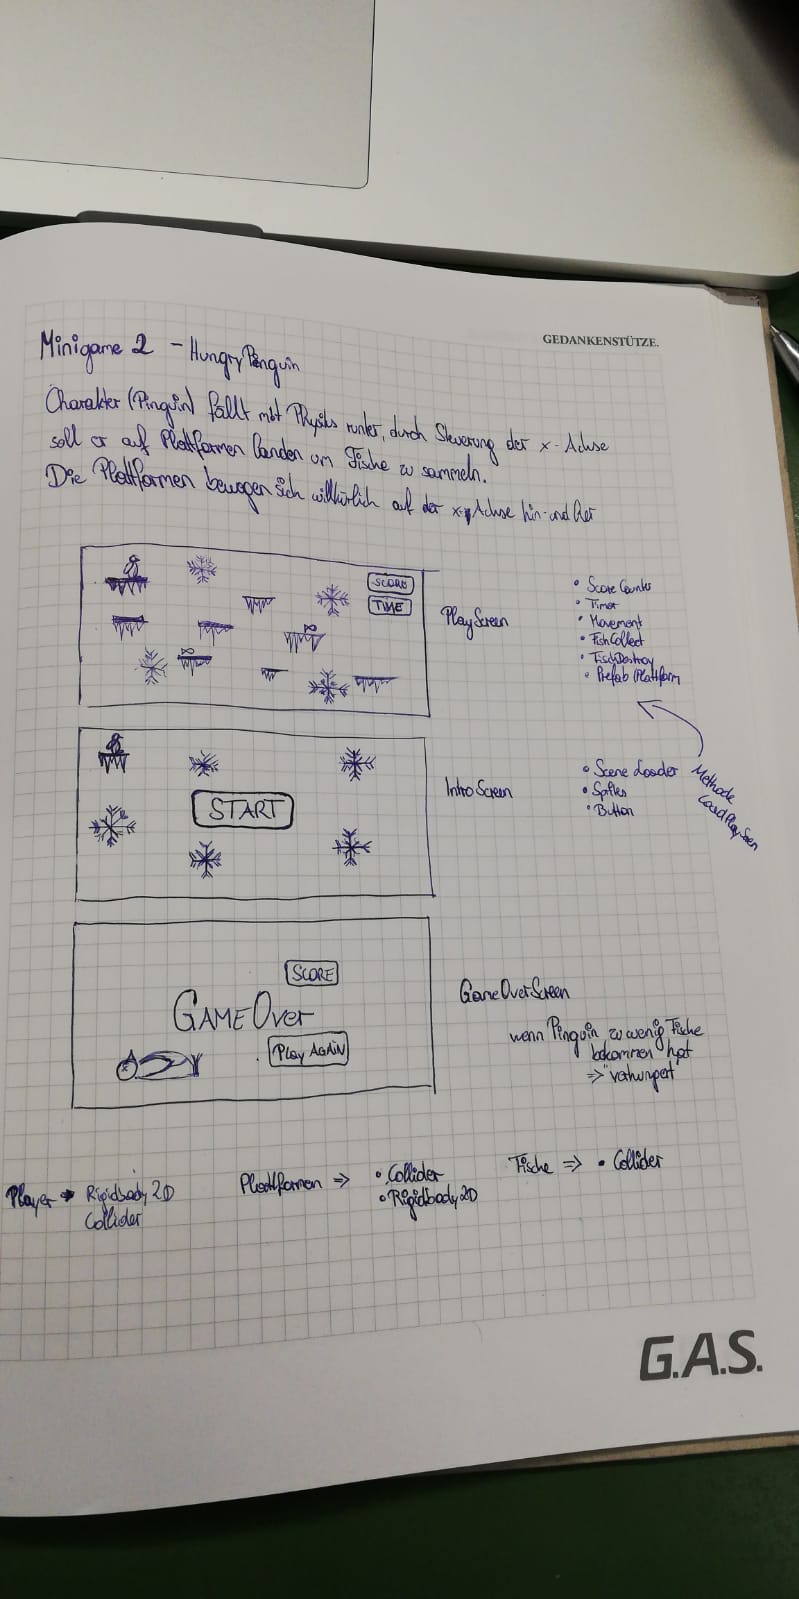 GEDANKENSTÜTZE.
Minigame 2 - HungryPenguin
Charakter (Pinguin) fällt mit Physik runter, durch Steuerung der x-Achse
soll er auf Plattformen landen um Fische zu sammeln.
Die Plattformen bewegen sich willkürlich auf der x-Achse hin- und her
SCORE
TIME
PlayScreen
• Score Counter
• Timer
• Movement
• FishCollect
• FischDestroy
• Prefab (Plattform
START
IntroScreen
• Scene Loader
• Button
Methode
SCORE
GAME Over
Play AGAIN
GameOverScreen
wenn Pinguin zu wenig Fische
bekommen hat
=> "verhungert"
Player → Rigidbody 2D
Collider
Plattformen => • Collider
• Rigidbody 2D
Fische => • Collider
G.A.S.